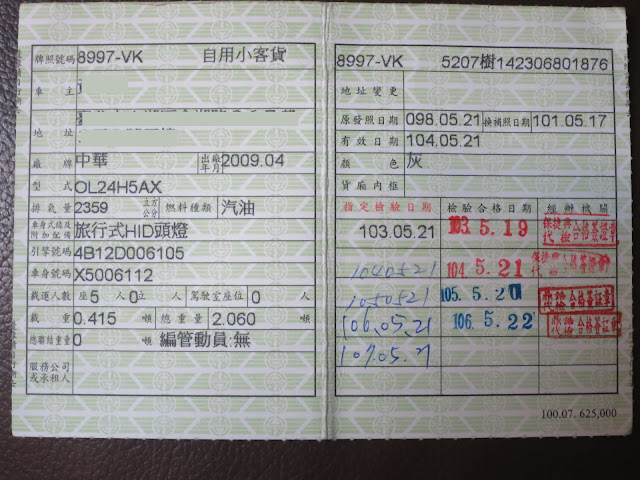 牌照號碼 8997-VK 自用小客貨
車主
地址
廠牌 中華 出廠年月 2009.04
型式 OL24H5AX
排氣量 2359 立方公分 燃料種類 汽油
車身式樣及附加配備 旅行式HID頭燈
引擎號碼 4B12D006105
車身號碼 X5006112
載運人數 座5人0立人 駕駛室座位 0人
載重 0.415 噸 總重量 2.060 噸
總聯結重量 0 噸 編管動員:無
服務公司或承租人
8997-VK 5207樹142306801876
地址變更
原發照日期 098.05.21 換補照日期 101.05.17
有效日期 104.05.21
顏色 灰
貨廂內框
指定檢驗日期 檢驗合格日期 經辦機關
103.05.21 103.5.19 代檢合格簽證章
1040521 104.5.21
1050521 105.5.20 合格簽証章
106.05.21 106.5.22 合格簽証章
107.05.21
100.07. 625,000